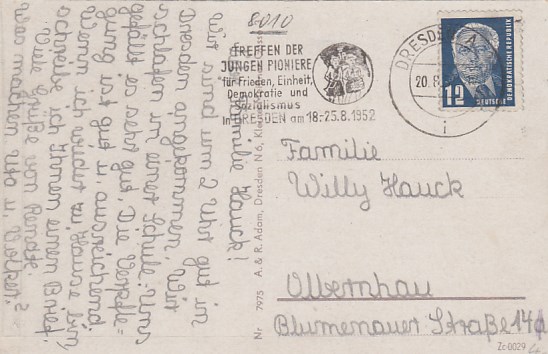 8010
TREFFEN DER
JUNGEN PIONIERE
für Frieden, Einheit,
Demokratie und
Sozialismus
in DRESDEN am 18.-25.8.1952
DRESDEN A
20.8.
i
12
DEUTSCHE
DEMOKRATISCHE REPUBLIK
Familie Hauck!
Wir sind um 2 Uhr gut in
Dresden angekommen. Wir
schlafen in einer Schule. Uns
gefällt es sehr gut. Die Verpfle=
gung ist gut u. ausreichend
Wenn ich wieder zu Hause bin,
schreibe ich Ihnen einen Brief.
Viele Grüße von Renate.
Was machen Uta u. Volker?
Nr 7975 A. & R. Adam, Dresden N 6,
Familie
Willy Hauck
Olbernhau
Blumenauer Straße 14
Zc-0029